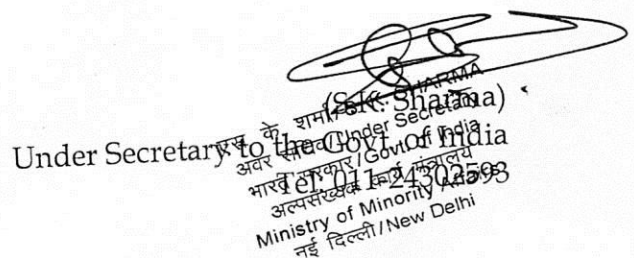 (S.K. Sharma)
Under Secretary to the Govt. of India
Tel: 011-24302593
एस के शर्मा/S. K. SHARMA
अवर सचिव/Under Secretary
भारत सरकार/Govt. of India
अल्पसंख्यक कार्य मंत्रालय
Ministry of Minority Affairs
नई दिल्ली/New Delhi